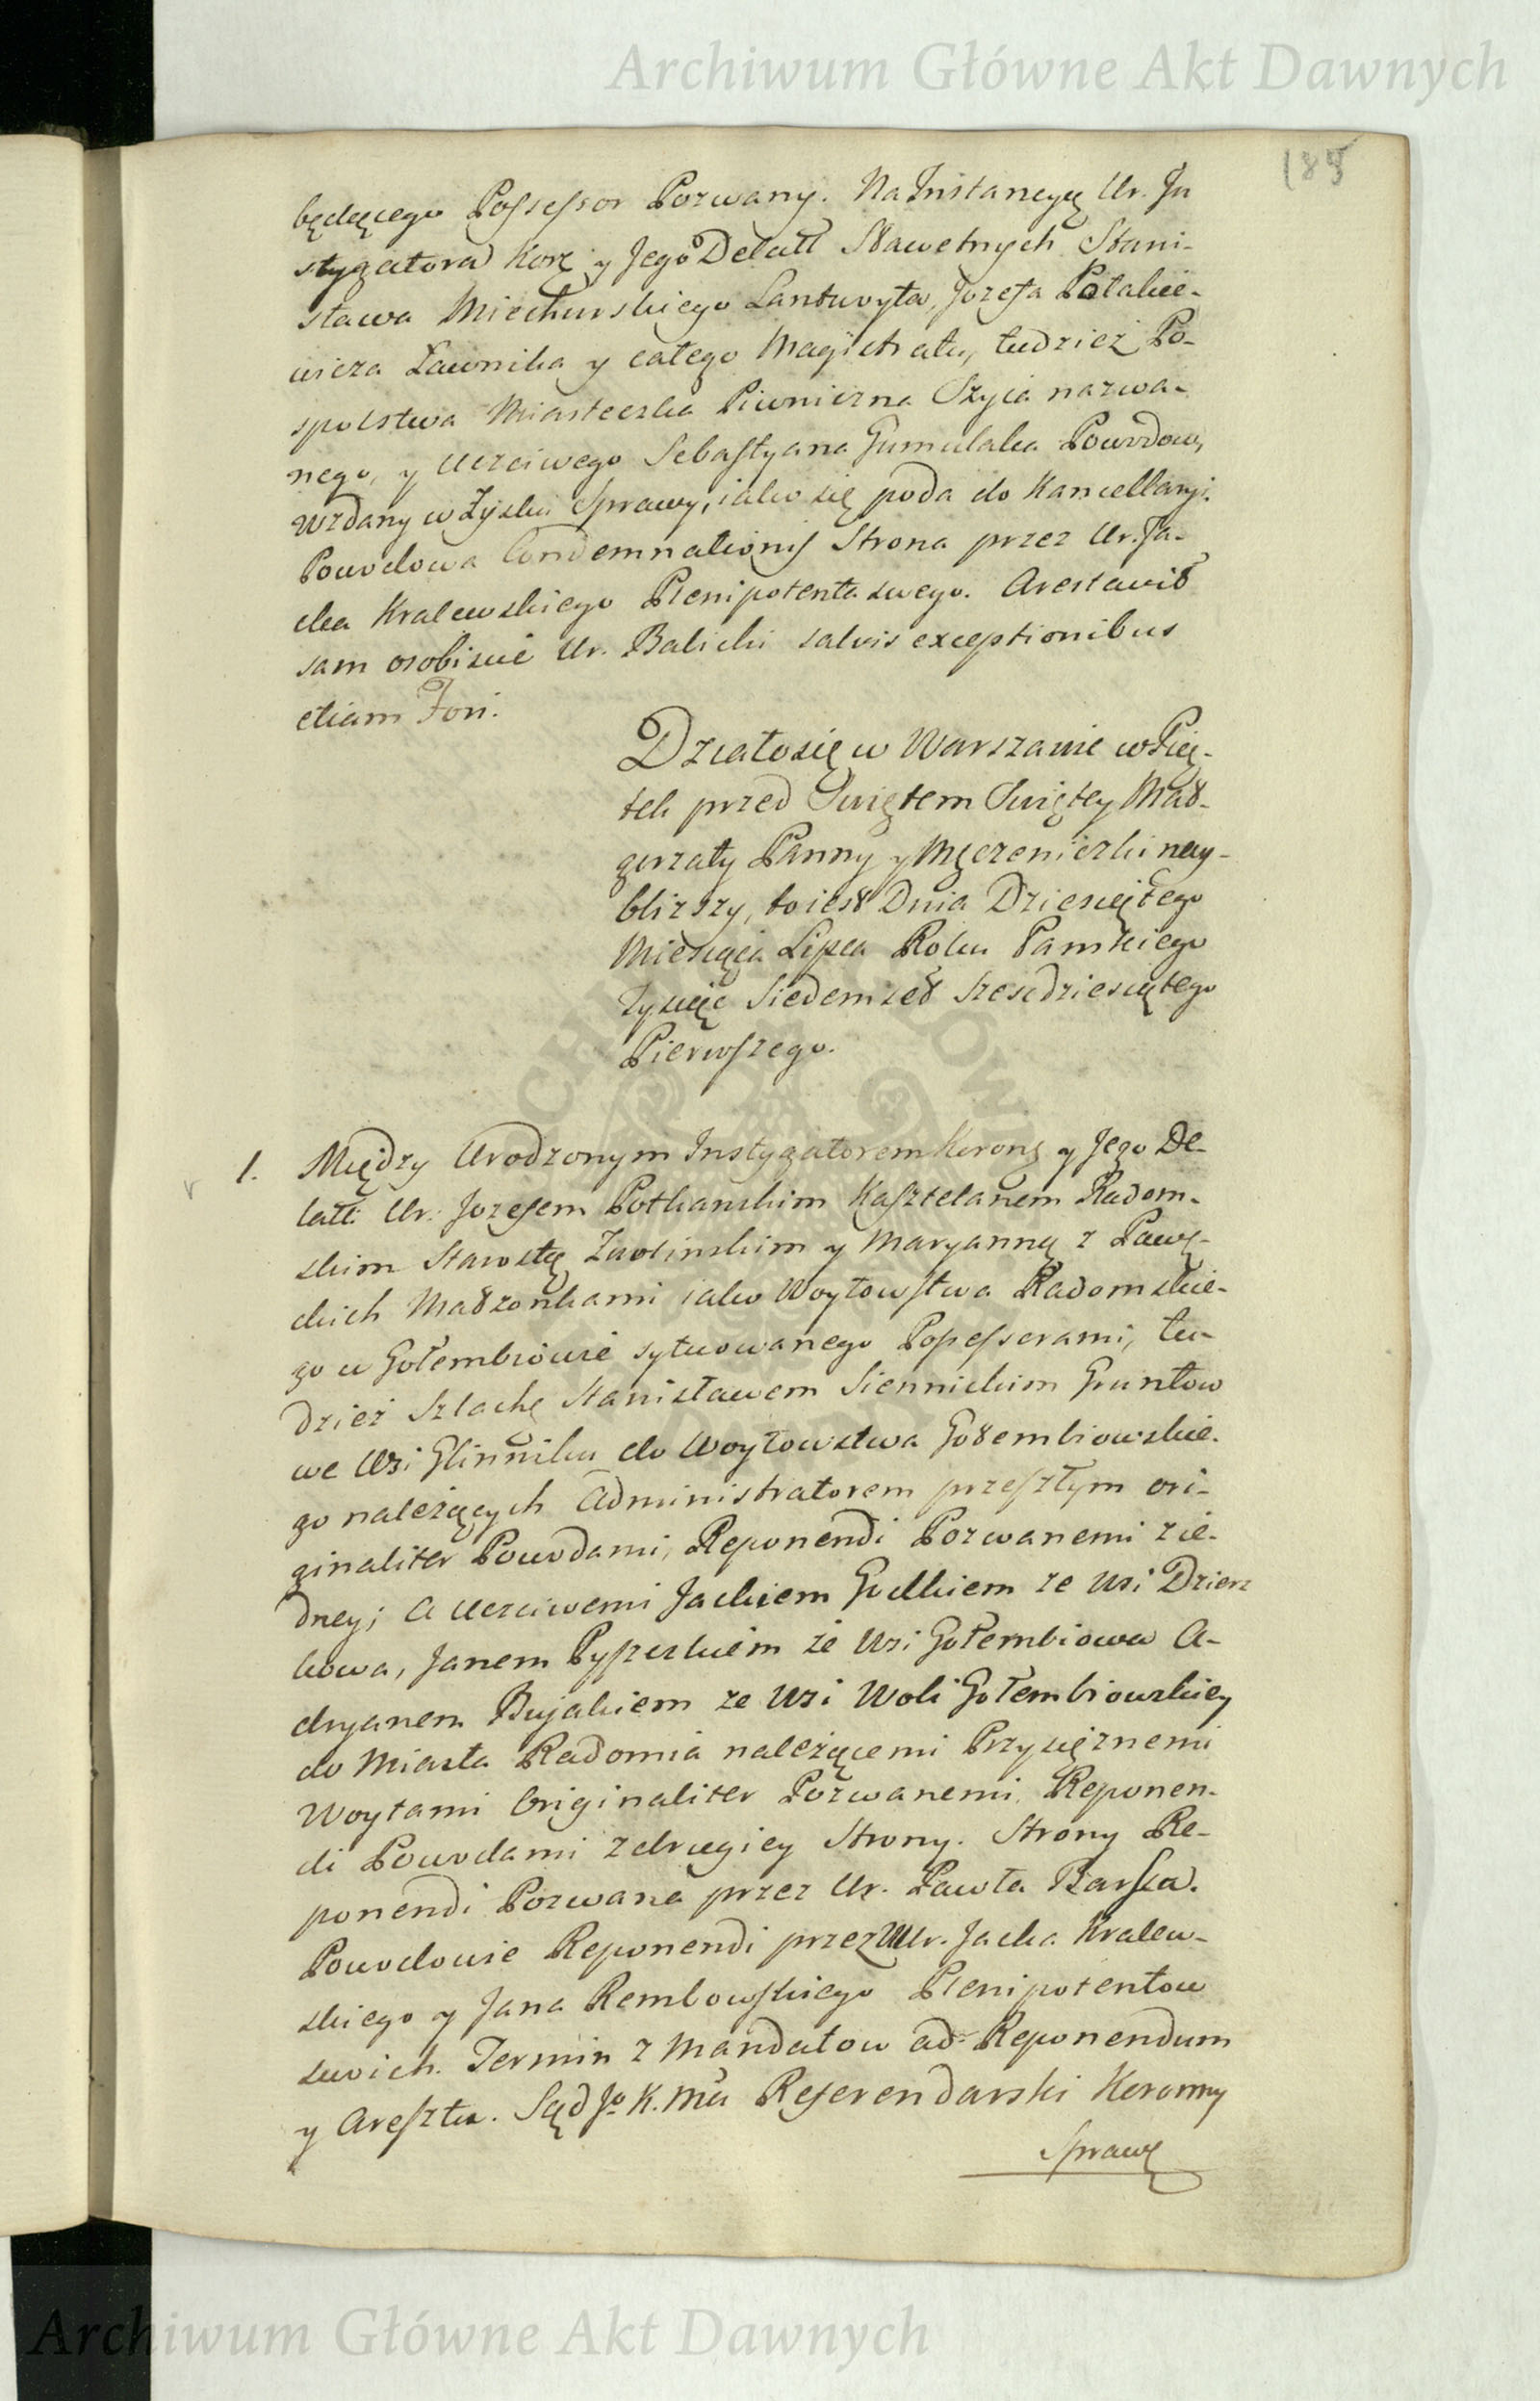 Archiwum Główne Akt Dawnych
185
będącego Possessor Pozwany. Na Instancyą Ur. In
stygatora Korą y Jego Delatt Sławetnych Stani-
sława Miechurskiego Lantwoyta, Jozefa Polakie-
wicza Ławnika y całego Magistratu, tudzież Po-
spolstwa Miasteczka Piwniczna Szyia nazwa-
nego, y Uczciwego Sebastyana Gumulaka Powodow,
wzdany w Zysku Sprawy, iako się poda do Kancellaryi.
Powodowa Condemnationis Strona przez Ur. Ja-
cka Kralewskiego Plenipotenta swego. Arestował
sam osobiscie Ur. Balicki salvis exceptionibus
etiam Fori.
Działo się w Warszawie w Pią-
tek przed Swiętem Swiętey Mał-
gorzaty Panny y Męczeniczki nay-
bliższy, to iest Dnia Dziesiątego
Miesiąca Lipca Roku Pamskiego
Tysiąc Siedemset Szescdziesiątego
Pierwszego.
1. Między Urodzonym Instygatorem Korong y Jego De-
latt: Ur: Jozefem Potkanskim Kasztelanem Radom-
skim Starostą Zwolinskim y Maryanną z Pawę-
ckich Małżonkami iako Woytowstwa Radomskie-
go w Gołembiowie sytuowanego Possessorami, tu-
dzież Szlachę Stanisławem Siennickim Gruntow
we Wsi Glinniku do Woytowstwa Gołembiowskie-
go należących Administratorem przeszłym ori-
ginaliter Powodami, Reponendi Pozwanemi z ie-
dney; A Uczciwemi Jackiem Gulkiem ze Wsi Dzierz
kowa, Janem Pyszczkiem ze Wsi Gołembiowa A-
dryanem Bujakiem ze Wsi Woli Gołembiowskiey
do Miasta Radomia należącemi Przysiężnemi
Woytami Originaliter Pozwanemi, Reponen-
di Powodami z drugiey Strony. Strony Re-
ponendi Pozwana przez Ur. Pawła Barssa.
Powodowie Reponendi przez Ur. Jacka Kralew-
skiego y Jana Rembowskiego Plenipotentow
swoich. Termin z Mandatow ad Reponendum
y Aresztu. Sąd Jo K. Mci Referendarski Koronny
Sprawę
Archiwum Główne Akt Dawnych